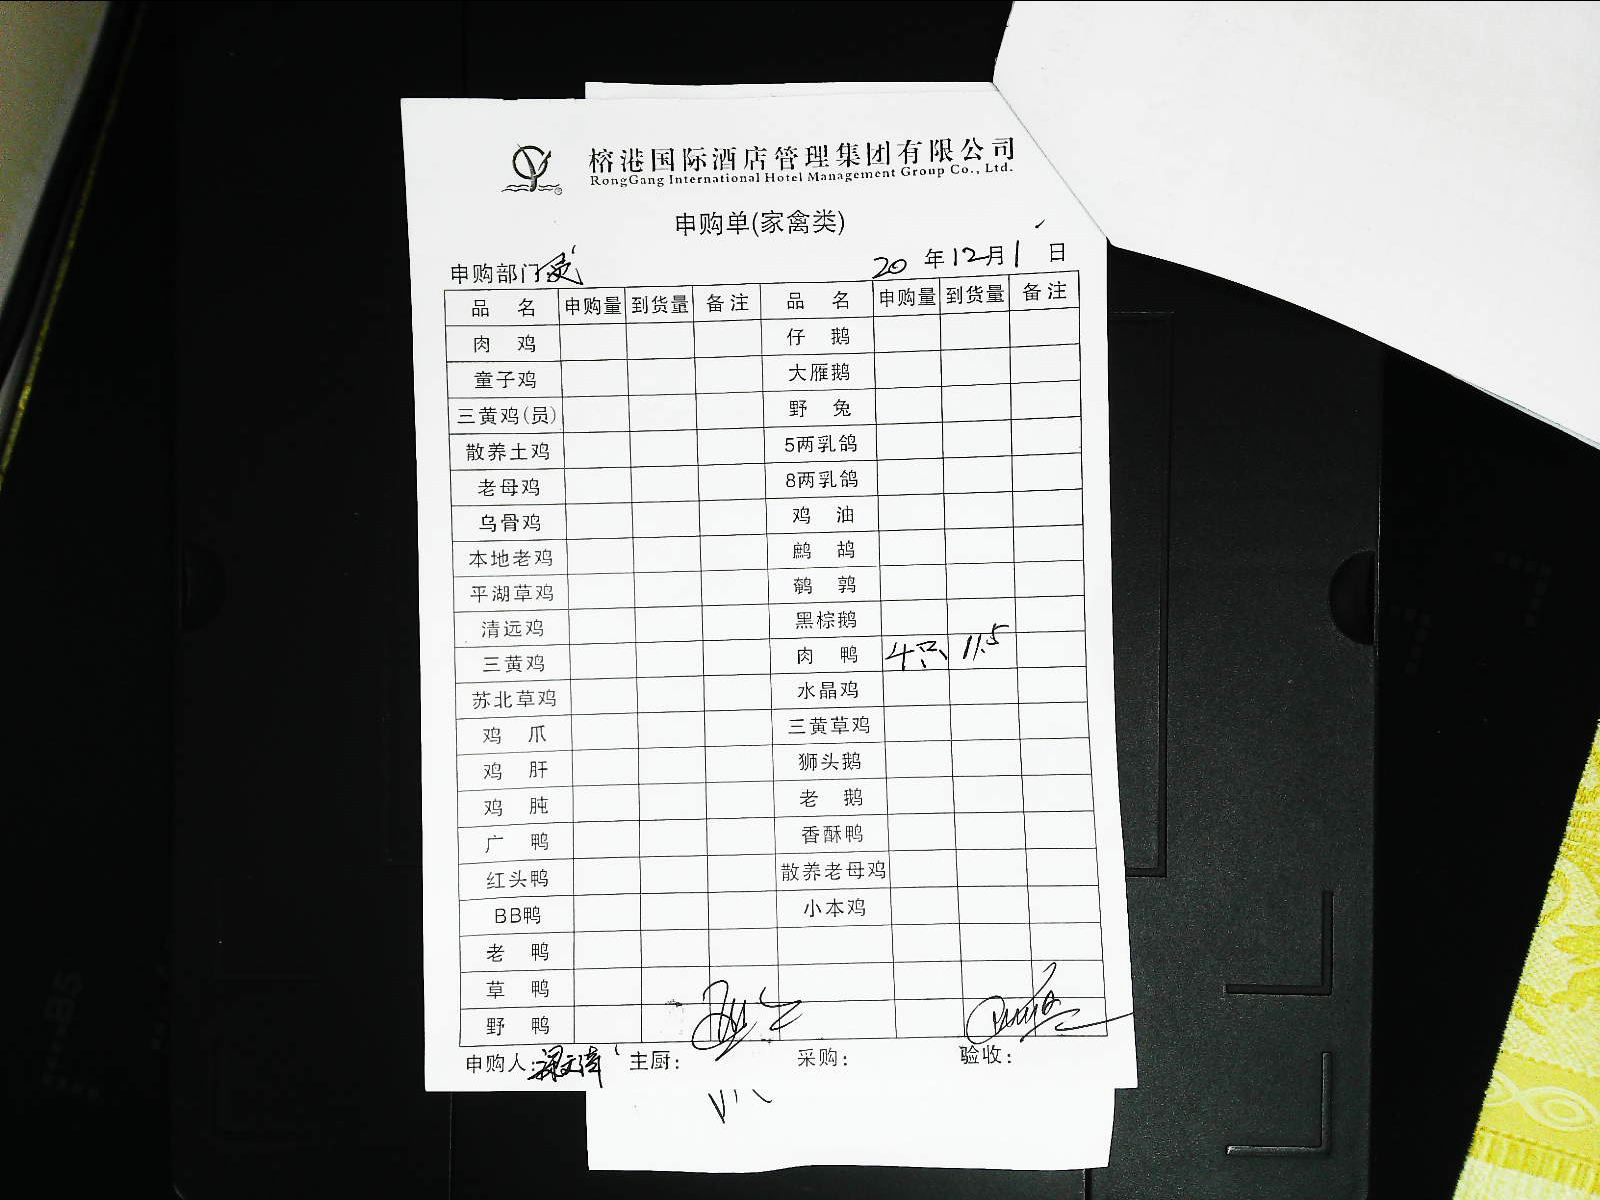 榕港国际酒店管理集团有限公司
RongGang International Hotel Management Group Co., Ltd.
申购单(家禽类)
申购部门 20 年 12 月 1 日
品 名 申购量 到货量 备注 品 名 申购量 到货量 备注
肉 鸡 仔 鹅
童子鸡 大雁鹅
三黄鸡(员) 野 兔
散养土鸡 5两乳鸽
老母鸡 8两乳鸽
乌骨鸡 鸡 油
本地老鸡 鹧 鸪
平湖草鸡 鹌 鹑
清远鸡 黑棕鹅
三黄鸡 肉 鸭 4只 11.5
苏北草鸡 水晶鸡
鸡 爪 三黄草鸡
鸡 肝 狮头鹅
鸡 肫 老 鹅
广 鸭 香酥鸭
红头鸭 散养老母鸡
BB鸭 小本鸡
老 鸭
草 鸭
野 鸭
申购人: 主厨: 采购: 验收: